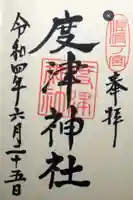 奉拝
佐渡一宮
度津神社
令和四年六月二十五日